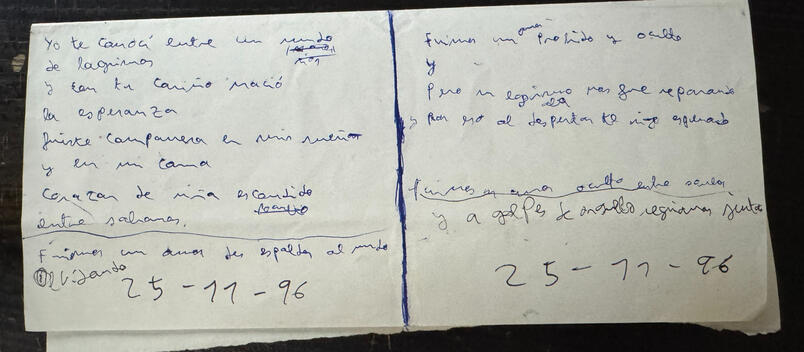 Yo te conocí entre un mundo
de lagrimas
y con tu cariño nació
la esperanza
fuiste compañera en mis sueños
y en mi cama
Corazon de niña escondido
entre sabanas.
Fuimos un amor des espaldas al mundo
olvidando
25-11-96
Fuimos un amor Prohido y oculto
y
Pero un
y Por eso al despertar te sigo esperado
Fuimos un amor oculto entre
y a golpes de orgullo seguimos juntos
25-11-96